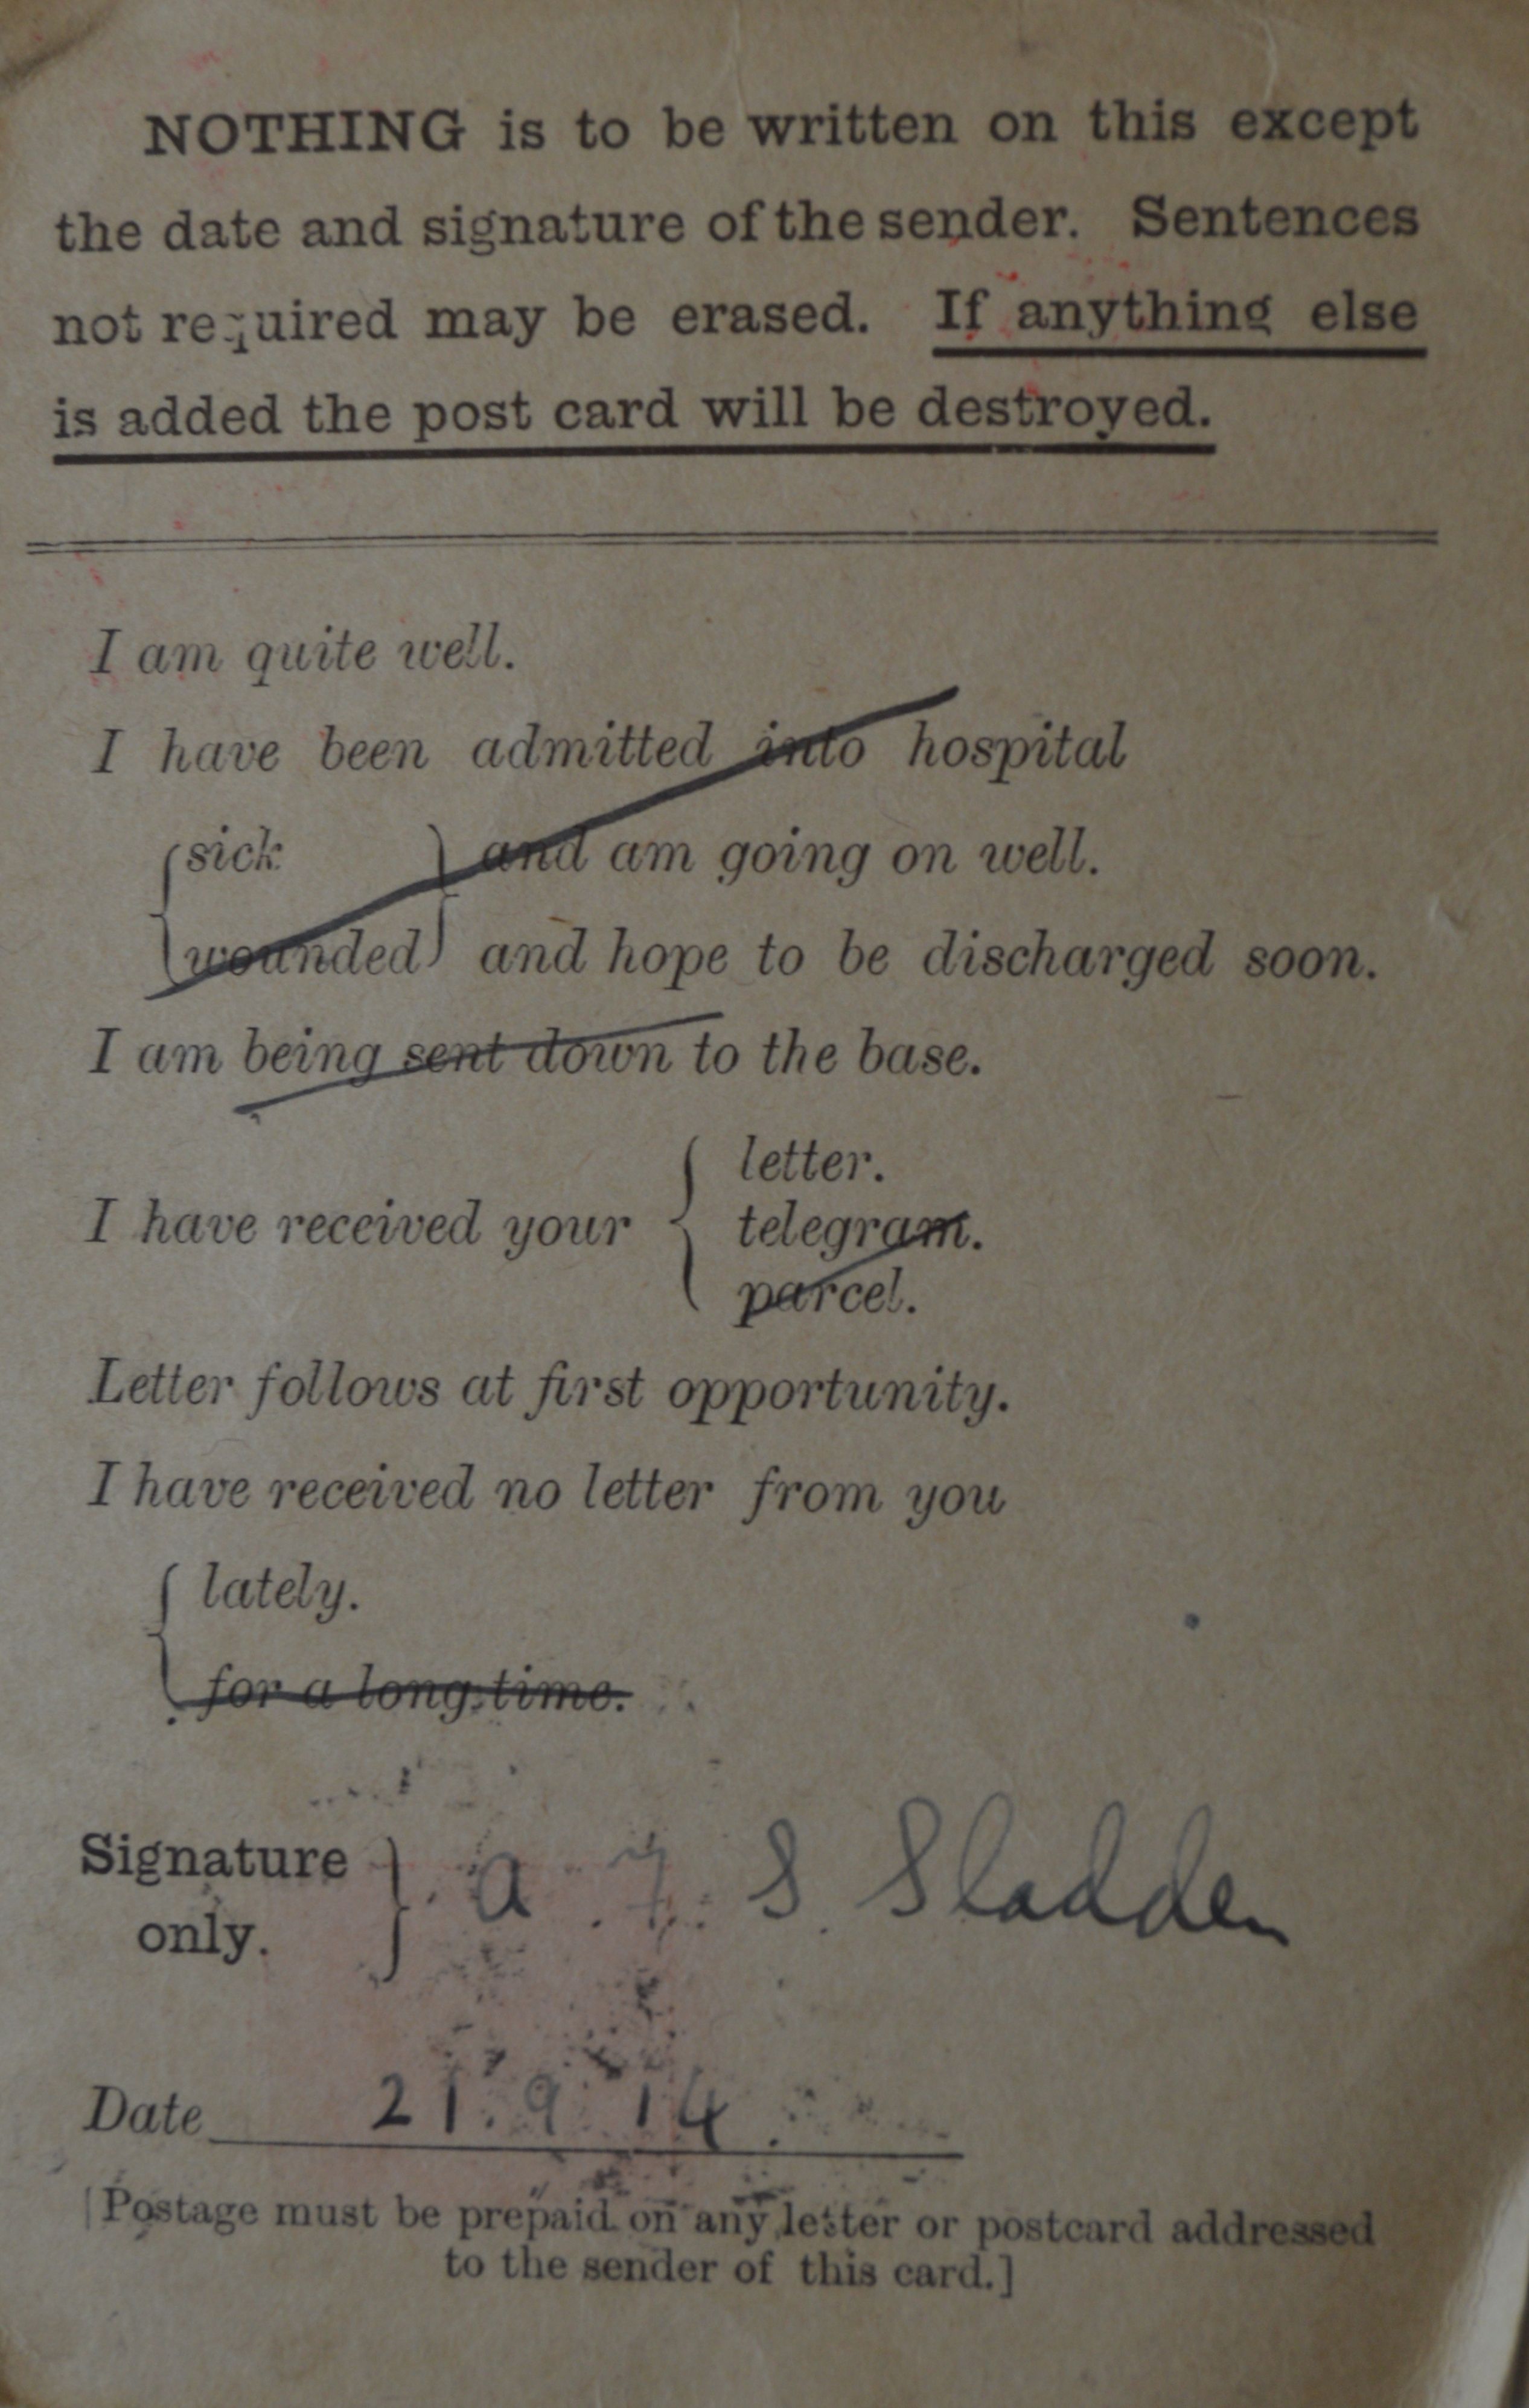 NOTHING is to be written on this except
the date and signature of the sender. Sentences
not required may be erased. If anything else
is added the post card will be destroyed.
I am quite well.
I have been admitted into hospital
sick and am going on well.
wounded and hope to be discharged soon.
I am being sent down to the base.
letter.
I have received your telegram.
parcel.
Letter follows at first opportunity.
I have received no letter from you
lately.
for a long time.
Signature
only. A. F. S. Sladden
Date 21.9.14.
[Postage must be prepaid on any letter or postcard addressed
to the sender of this card.]